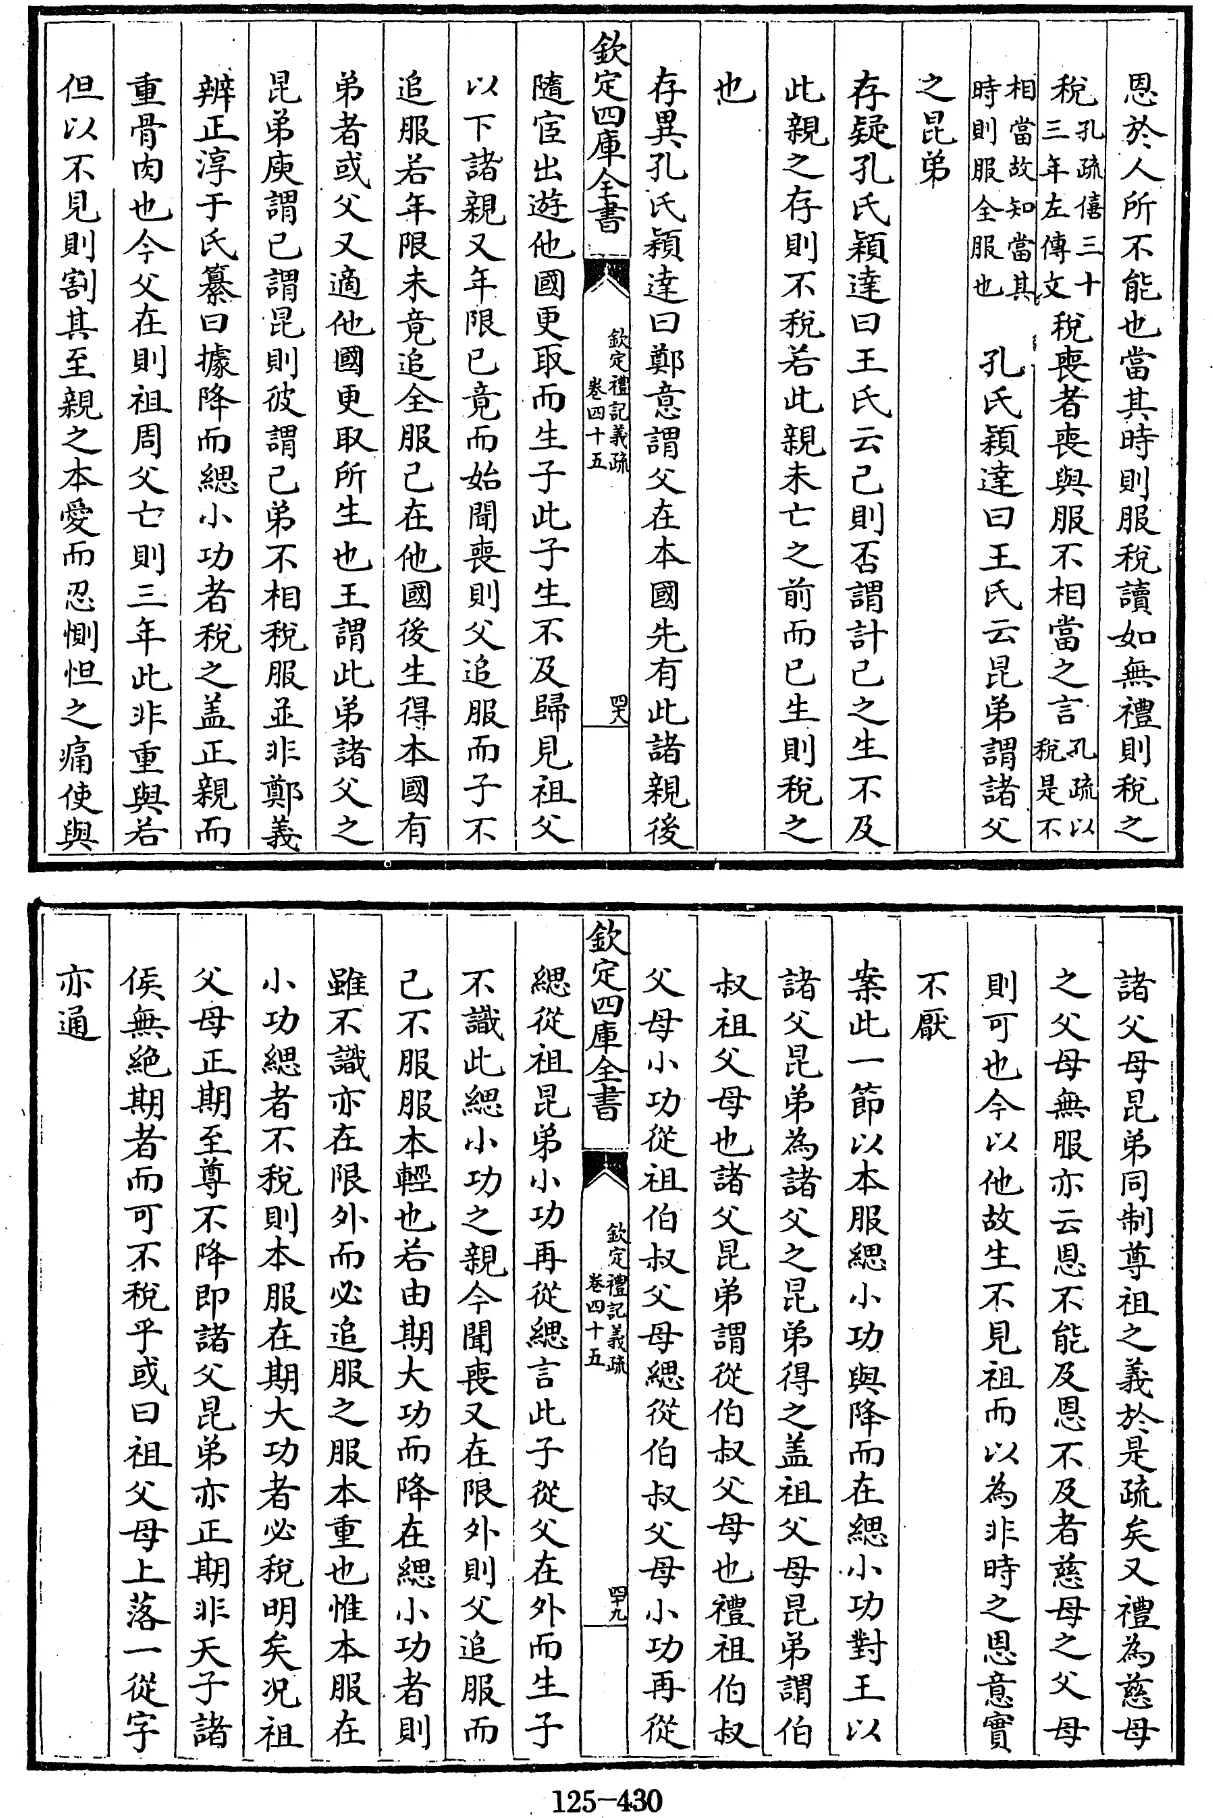 恩於人所不能也當其時則服稅讀如無禮則稅之
稅孔疏僖三十三年左傳文稅喪者喪與服不相當之言孔疏以稅是不
相當故知當其時則服全服也　孔氏穎達曰王氏云昆弟謂諸父
之昆弟
存疑孔氏穎達曰王氏云己則否謂計己之生不及
此親之存則不稅若此親未亡之前而已生則稅之
也
存異孔氏穎達曰鄭意謂父在本國先有此諸親後
欽定四庫全書
欽定禮記義疏
卷四十五
四十八
隨宦出遊他國更取而生子此子生不及歸見祖父
以下諸親又年限已竟而始聞喪則父追服而子不
追服若年限未竟追全服己在他國後生得本國有
弟者或父又適他國更取所生也王謂此弟諸父之
昆弟庾謂己謂昆則彼謂己弟不相稅服並非鄭義
辨正淳于氏纂曰據降而緦小功者稅之盖正親而
重骨肉也今父在則祖周父亡則三年此非重與若
但以不見則割其至親之本愛而忍惻怛之痛使與
諸父母昆弟同制尊祖之義於是疏矣又禮為慈母
之父母無服亦云恩不能及恩不及者慈母之父母
則可也今以他故生不見祖而以為非時之恩意實
不厭
案此一節以本服緦小功與降而在緦小功對王以
諸父昆弟為諸父之昆弟得之盖祖父母昆弟謂伯
叔祖父母也諸父昆弟謂從伯叔父母也禮祖伯叔
父母小功從祖伯叔父母緦從伯叔父母小功再從
欽定四庫全書
欽定禮記義疏
卷四十五
四十九
緦從祖昆弟小功再從緦言此子從父在外而生子
不識此緦小功之親今聞喪又在限外則父追服而
己不服服本輕也若由期大功而降在緦小功者則
雖不識亦在限外而必追服之服本重也惟本服在
小功緦者不稅則本服在期大功者必稅明矣况祖
父母正期至尊不降即諸父昆弟亦正期非天子諸
侯無絶期者而可不稅乎或曰祖父母上落一從字
亦通
125-430